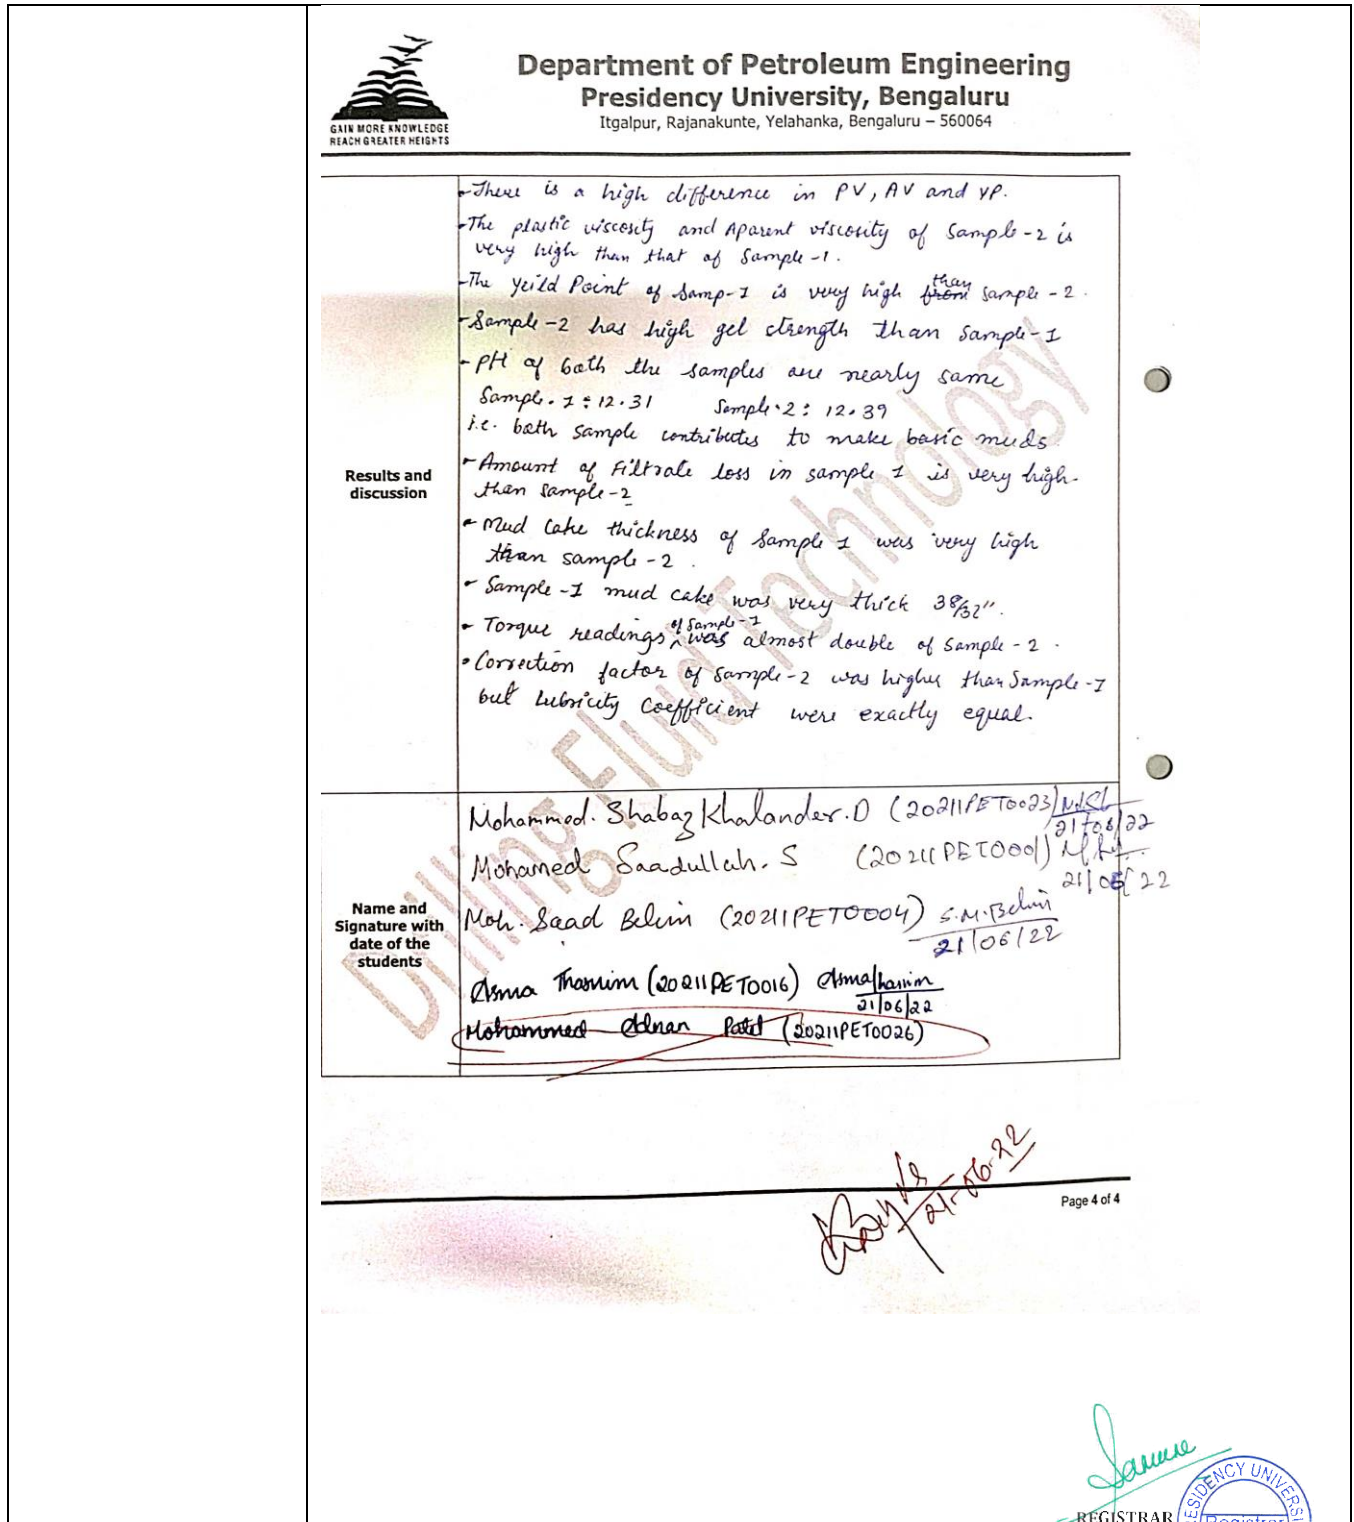 GAIN MORE KNOWLEDGE
REACH GREATER HEIGHTS
Department of Petroleum Engineering
Presidency University, Bengaluru
Itgalpur, Rajanakunte, Yelahanka, Bengaluru – 560064
Results and
discussion
- There is a high difference in PV, AV and YP.
- The plastic viscosity and Aparent viscosity of Sample-2 is
very high than that of Sample-1.
- The Yeild Point of Samp-1 is very high from than sample-2.
- Sample-2 has high gel strength than Sample-1
- PH of both the samples are nearly same
Sample-1 : 12.31 Sample-2 : 12.39
i.e. both sample contributes to make basic muds.
- Amount of Filtrate loss in sample 1 is very high
than sample-2
- Mud Cake thickness of Sample 1 was very high
than sample-2.
- Sample-1 mud cake was very thick 38/32".
- Torque readings of Sample-1 was almost double of Sample-2.
- Correction factor of Sample-2 was higher than Sample-1
but Lubricity Coefficient were exactly equal.
Drilling Fluid Technology
Name and
Signature with
date of the
students
Mohammed. Shabaz Khalander. D (20211PET0023)
21/06/22
Mohamed Saadullah. S (20211PET0001)
21/06/22
Moh. Saad Belim (20211PET0004) S.M.Belim
21/06/22
Asma Thasnim (20211PET0016)
21/06/22
Mohammed Adnan Patel (20211PET0026)
21-06-22
Page 4 of 4
REGISTRAR
Registrar